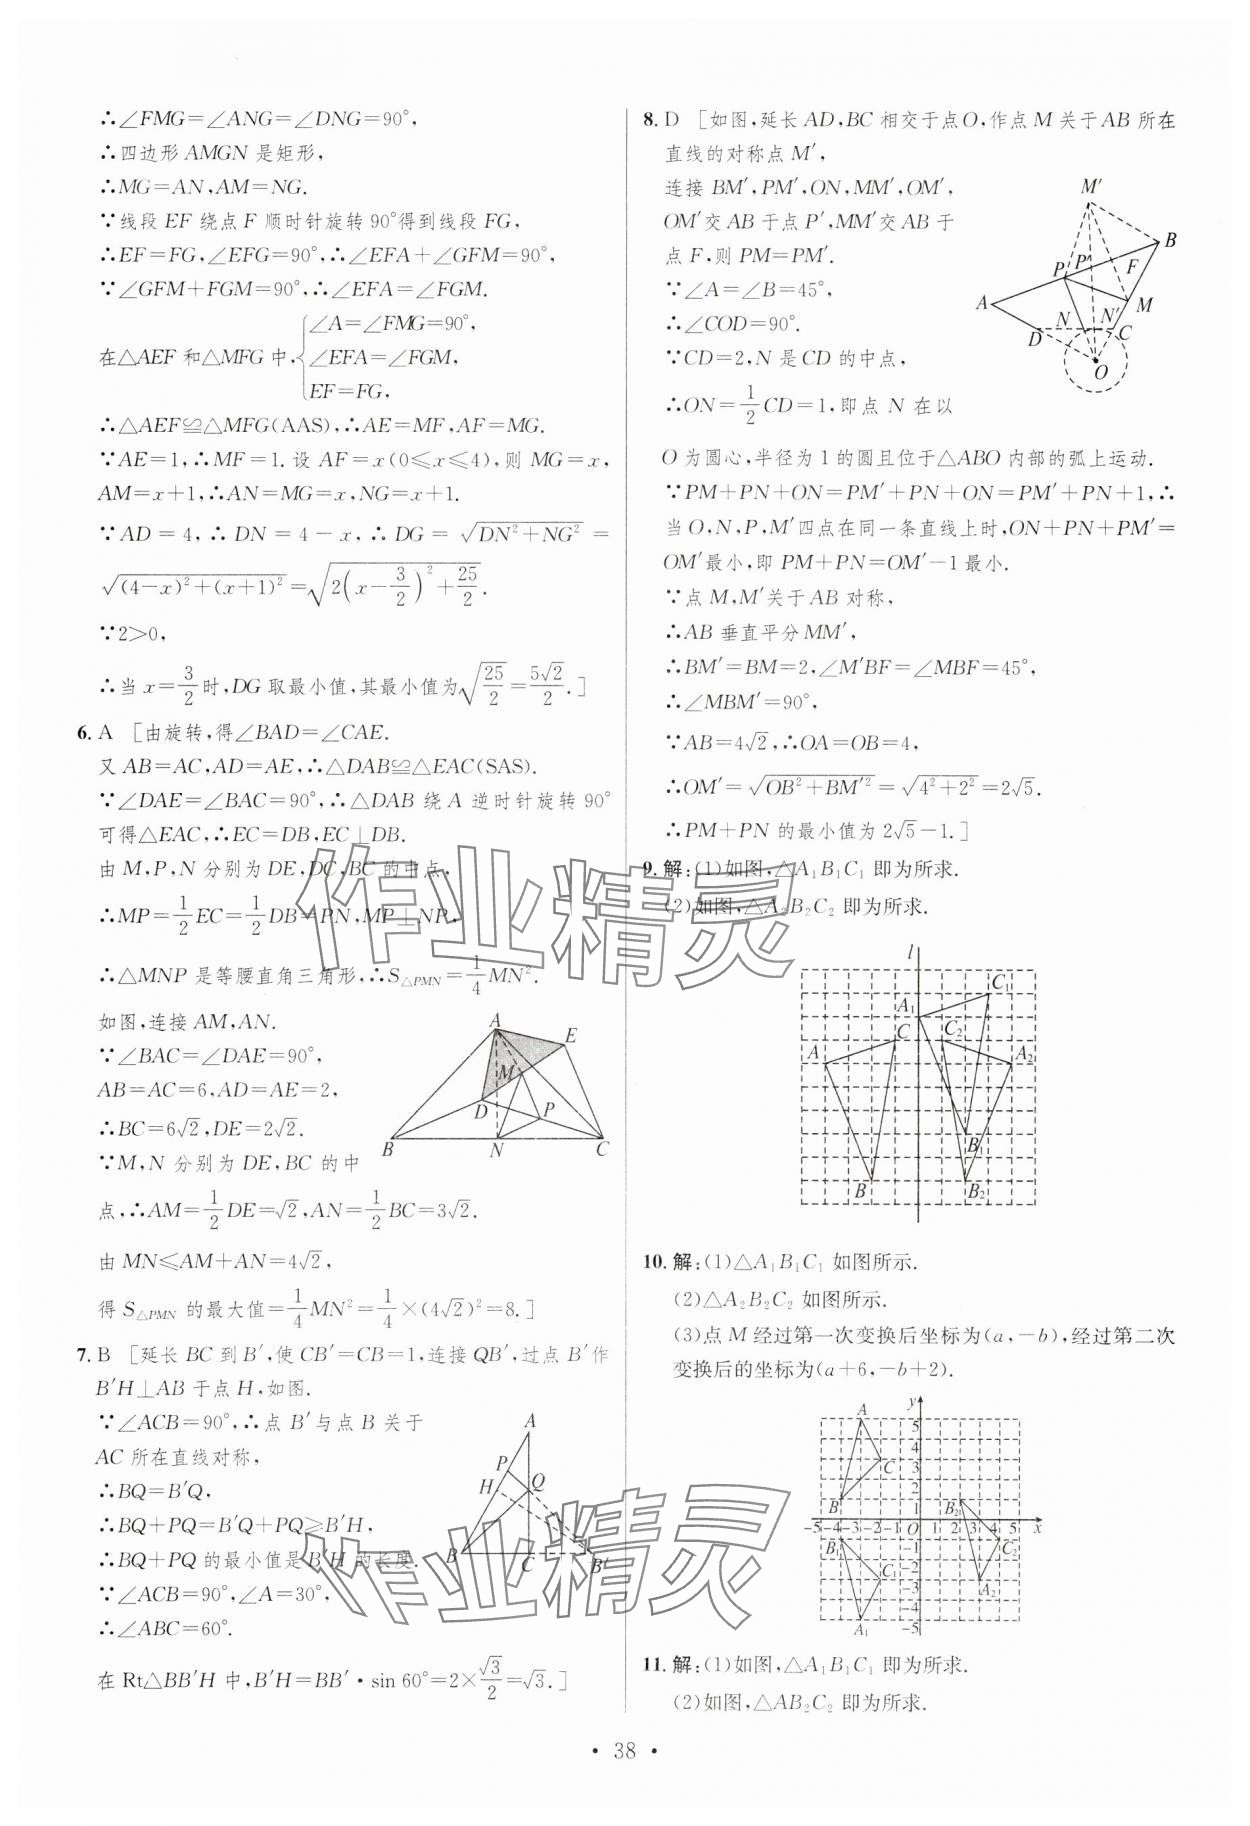 ∴∠FMG=∠ANG=∠DNG=90°,
∴四边形 AMGN 是矩形,
∴MG=AN,AM=NG.
∵线段 EF 绕点 F 顺时针旋转 90°得到线段 FG,
∴EF=FG,∠EFG=90°,∴∠EFA+∠GFM=90°,
∵∠GFM+FGM=90°,∴∠EFA=∠FGM.
在△AEF 和△MFG 中,{∠A=∠FMG=90°,
∠EFA=∠FGM,
EF=FG,
∴△AEF≌△MFG(AAS),∴AE=MF,AF=MG.
∵AE=1,∴MF=1.设 AF=x(0≤x≤4),则 MG=x,
AM=x+1,∴AN=MG=x,NG=x+1.
∵AD=4,∴DN=4-x,∴DG=√(DN²+NG²)=
√((4-x)²+(x+1)²)=√(2(x-3/2)²+25/2).
∵2>0,
∴当 x=3/2时,DG 取最小值,其最小值为√(25/2)=5√2/2.]
6. A [由旋转,得∠BAD=∠CAE.
又 AB=AC,AD=AE,∴△DAB≌△EAC(SAS).
∵∠DAE=∠BAC=90°,∴△DAB 绕 A 逆时针旋转 90°
可得△EAC,∴EC=DB,EC⊥DB.
由 M,P,N 分别为 DE,DC,BC 的中点,
∴MP=1/2EC=1/2DB=PN,MP⊥NP,
∴△MNP 是等腰直角三角形,∴S△PMN=1/4MN².
如图,连接 AM,AN.
∵∠BAC=∠DAE=90°,
AB=AC=6,AD=AE=2,
∴BC=6√2,DE=2√2.
∵M,N 分别为 DE,BC 的中
点,∴AM=1/2DE=√2,AN=1/2BC=3√2.
由 MN≤AM+AN=4√2,
得 S△PMN 的最大值=1/4MN²=1/4×(4√2)²=8.]
A
E
M
D
P
B
N
C
7. B [延长 BC 到 B′,使 CB′=CB=1,连接 QB′,过点 B′作
B′H⊥AB 于点 H,如图.
∵∠ACB=90°,∴点 B′与点 B 关于
AC 所在直线对称,
∴BQ=B′Q,
∴BQ+PQ=B′Q+PQ≥B′H,
∴BQ+PQ 的最小值是 B′H 的长度.
∵∠ACB=90°,∠A=30°,
∴∠ABC=60°.
在 Rt△BB′H 中,B′H=BB′·sin 60°=2×√3/2=√3.]
A
P
H
Q
B
C
B′
8. D [如图,延长 AD,BC 相交于点 O,作点 M 关于 AB 所在
直线的对称点 M′,
连接 BM′,PM′,ON,MM′,OM′,
OM′交 AB 于点 P′,MM′交 AB 于
点 F,则 PM=PM′.
∵∠A=∠B=45°,
∴∠COD=90°.
∵CD=2,N 是 CD 的中点,
∴ON=1/2CD=1,即点 N 在以
O 为圆心,半径为 1 的圆且位于△ABO 内部的弧上运动.
∵PM+PN+ON=PM′+PN+ON=PM′+PN+1,∴
当 O,N,P,M′四点在同一条直线上时,ON+PN+PM′=
OM′最小,即 PM+PN=OM′-1 最小.
∵点 M,M′关于 AB 对称,
∴AB 垂直平分 MM′,
∴BM′=BM=2,∠M′BF=∠MBF=45°,
∴∠MBM′=90°,
∵AB=4√2,∴OA=OB=4,
∴OM′=√(OB²+BM′²)=√(4²+2²)=2√5.
∴PM+PN 的最小值为 2√5-1.]
M′
B
P
P′
F
A
M
N
N′
C
D
O
9. 解:(1)如图,△A₁B₁C₁ 即为所求.
(2)如图,△A₂B₂C₂ 即为所求.
l
C₁
A₁
C
C₂
A
A₂
B₁
B
B₂
10. 解:(1)△A₁B₁C₁ 如图所示.
(2)△A₂B₂C₂ 如图所示.
(3)点 M 经过第一次变换后坐标为(a,-b),经过第二次
变换后的坐标为(a+6,-b+2).
y
A
5
4
C
3
2
B
1
B₂
-5-4-3-2-1 O 1 2 3 4 5 x
B₁
-1
C₂
-2
C₁
-3
A₂
-4
A₁
-5
11. 解:(1)如图,△A₁B₁C₁ 即为所求.
(2)如图,△AB₂C₂ 即为所求.
· 38 ·
作业精灵
作业精灵